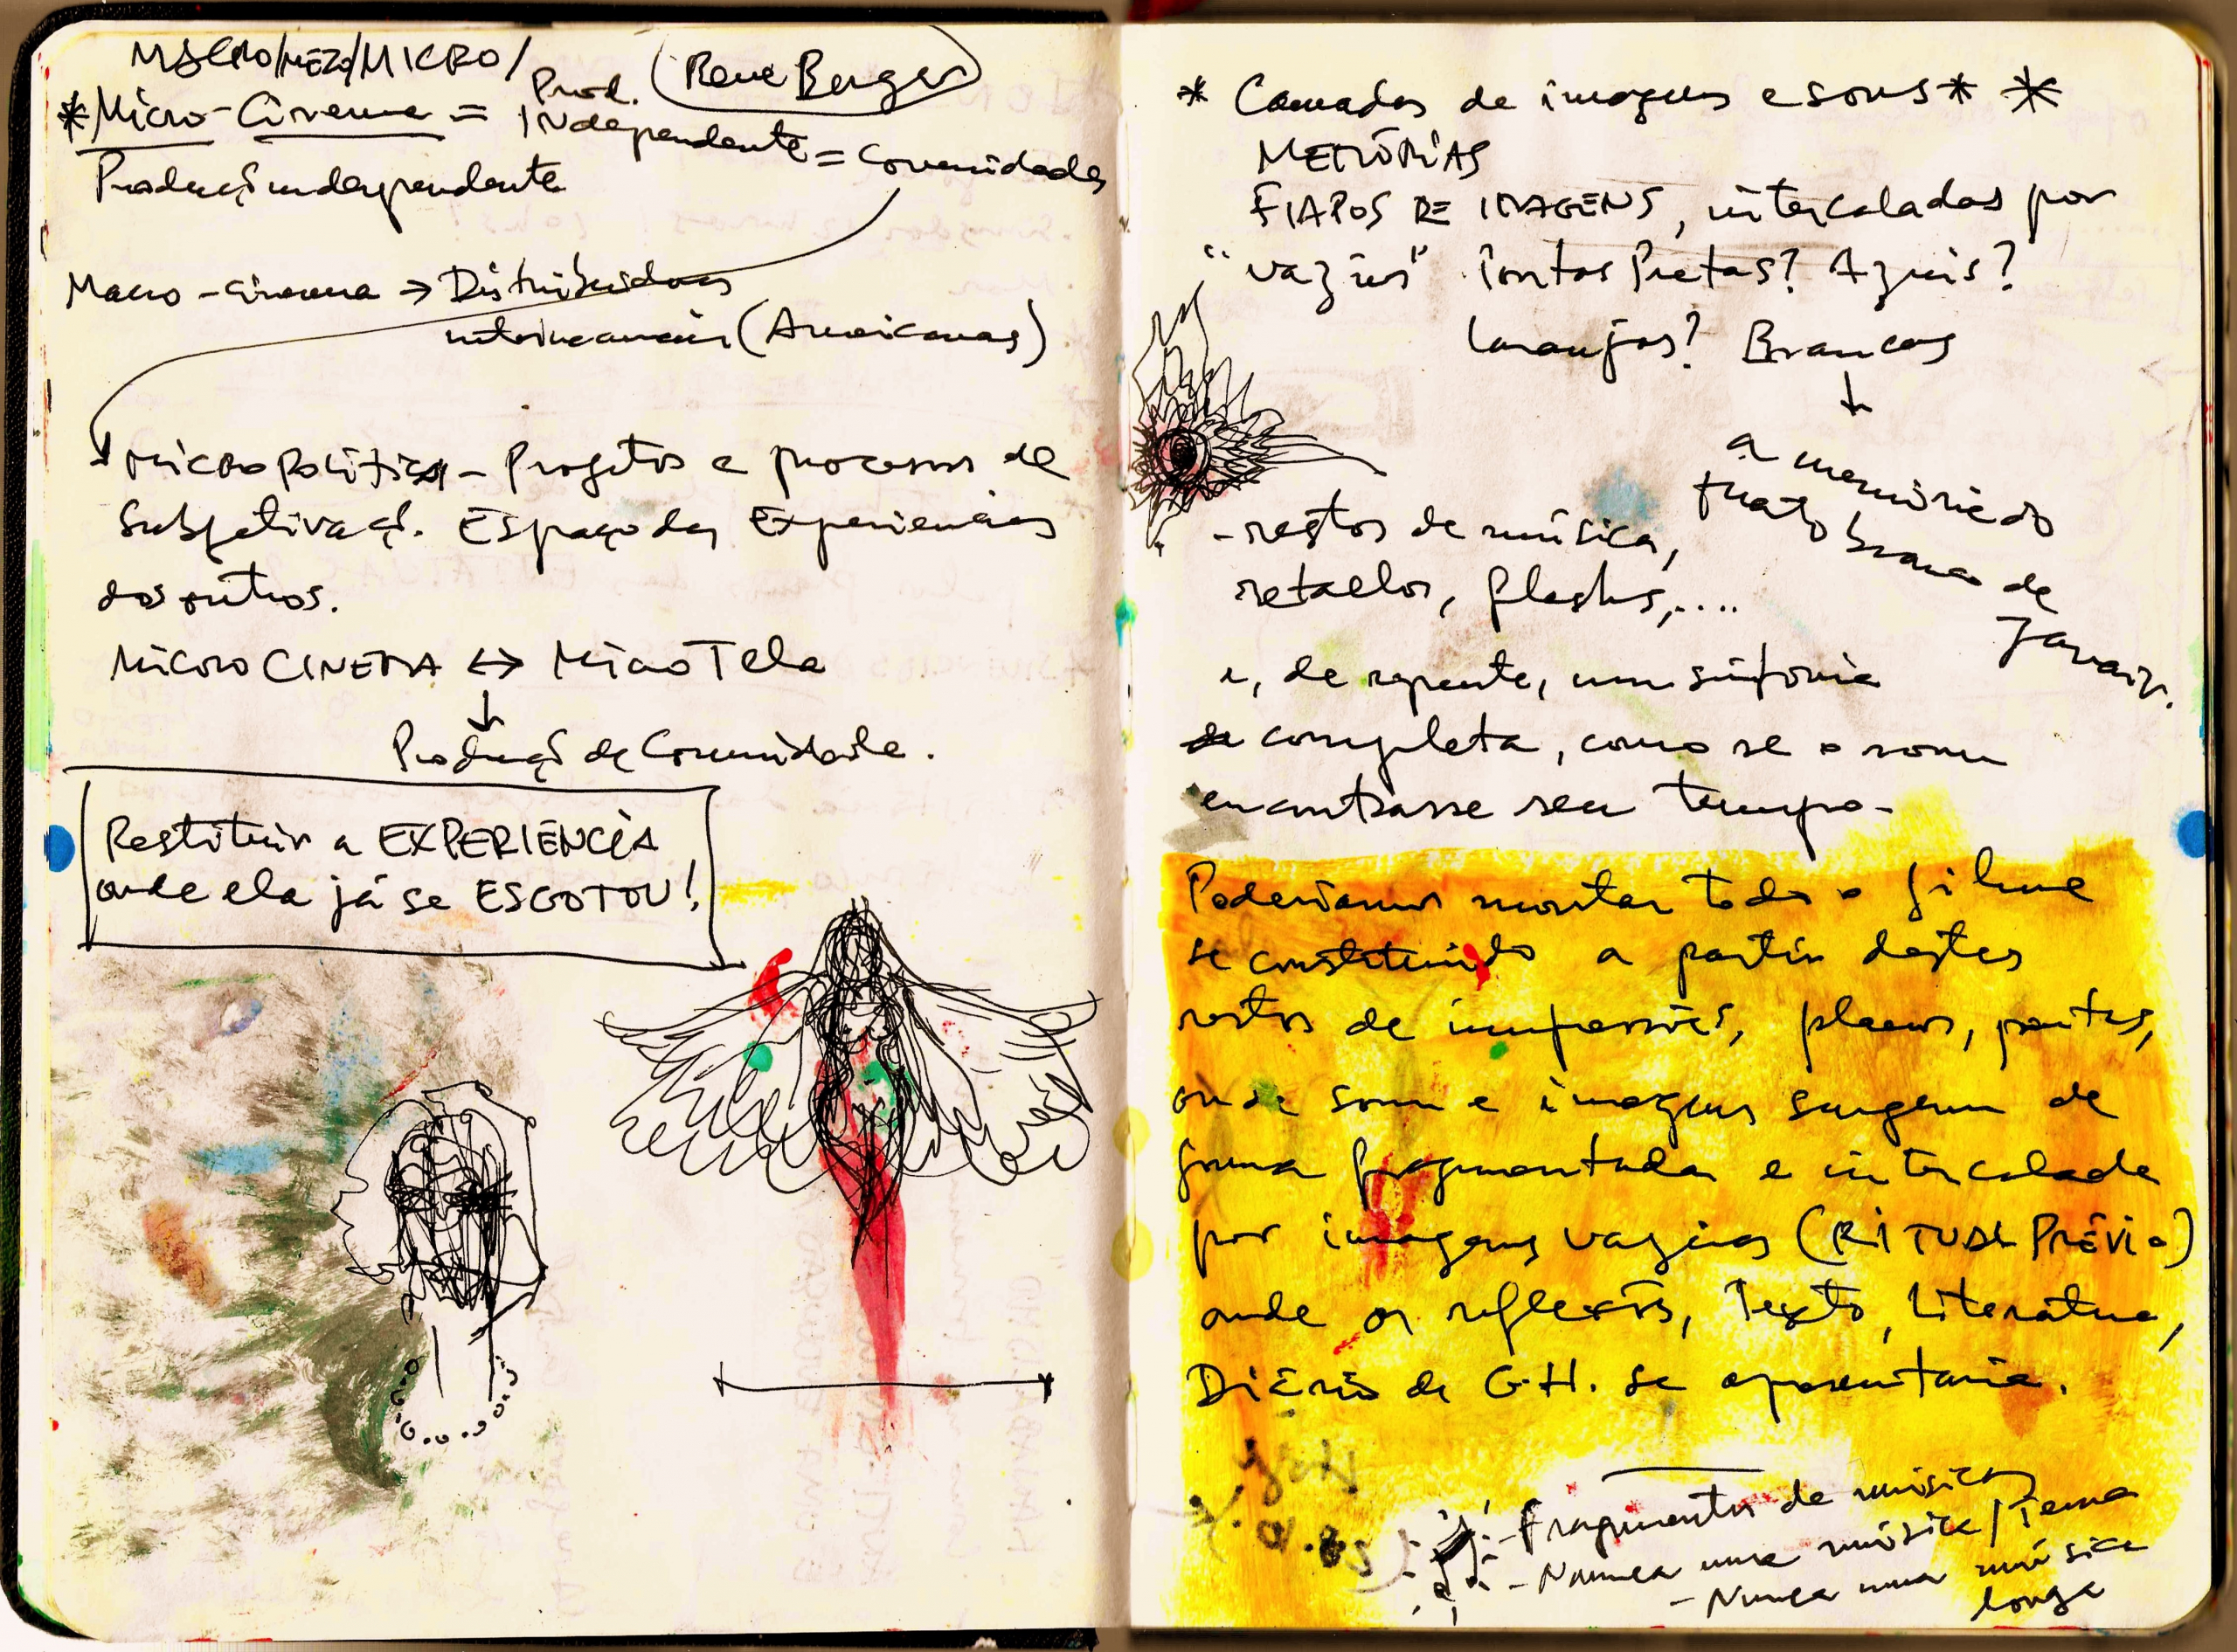 MACRO/MEZO/MICRO/
(Rene Berger)
*Micro-Cinema = Prod. INdependente = Comunidades
Produç independente
Macro-cinema → Distribuidoras
(Americanas)
MICROPOLÍTICA - Projetos e processos de
Subjetivaç. Espaço das Experiencias
dos outros.
MICROCINEMA ↔ MicroTela
↓
Produç de Comunidade.
Restituir a EXPERIÊNCIA
onde ela já se ESGOTOU!
* Camadas de imagens e sons * *
MEMÓRIAS
FIAPOS DE IMAGENS, intercalados por
"vazios" Pontas Pretas? Azuis?
Laranjas? Brancas
↓
a memória do
trato branco de
Janair.
- restos de música,
retalhos, flashs,....
e, de repente, uma sinfonia
completa, como se o som
encontrasse seu tempo.
Poderíamos montar todo o filme
se constituindo a partir destes
restos de impressões, planos, pontas,
onde som e imagens surgem de
forma fragmentada e intercalada
por imagens vazias (RITUAL PRÉVIO)
onde as reflexões, Texto, Literatura,
Diário de G.H. se apresentaria.
- Fragmentos de músicas
- Nunca uma música/Tema
- Nunca uma música
longa